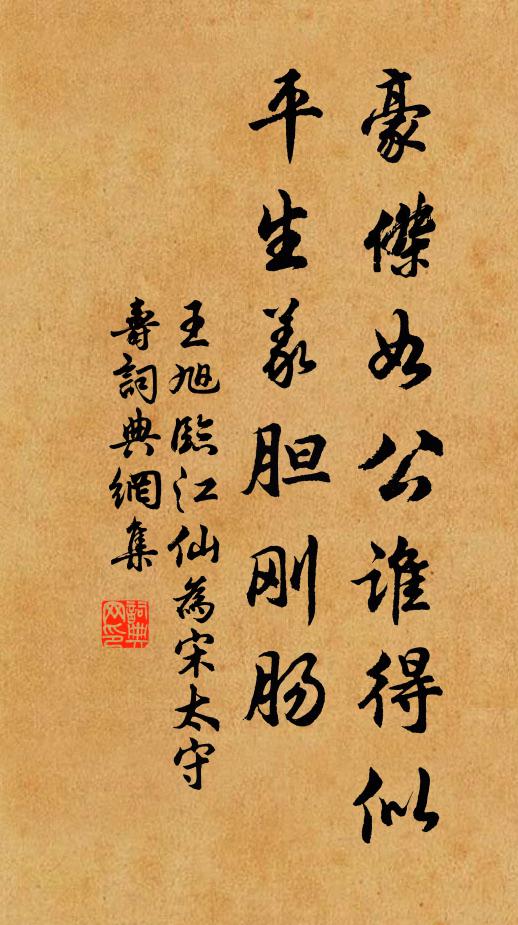 豪傑如公谁得似
平生义胆刚肠
王旭臨江仙為宋太守
壽詞典網集
詞典網印